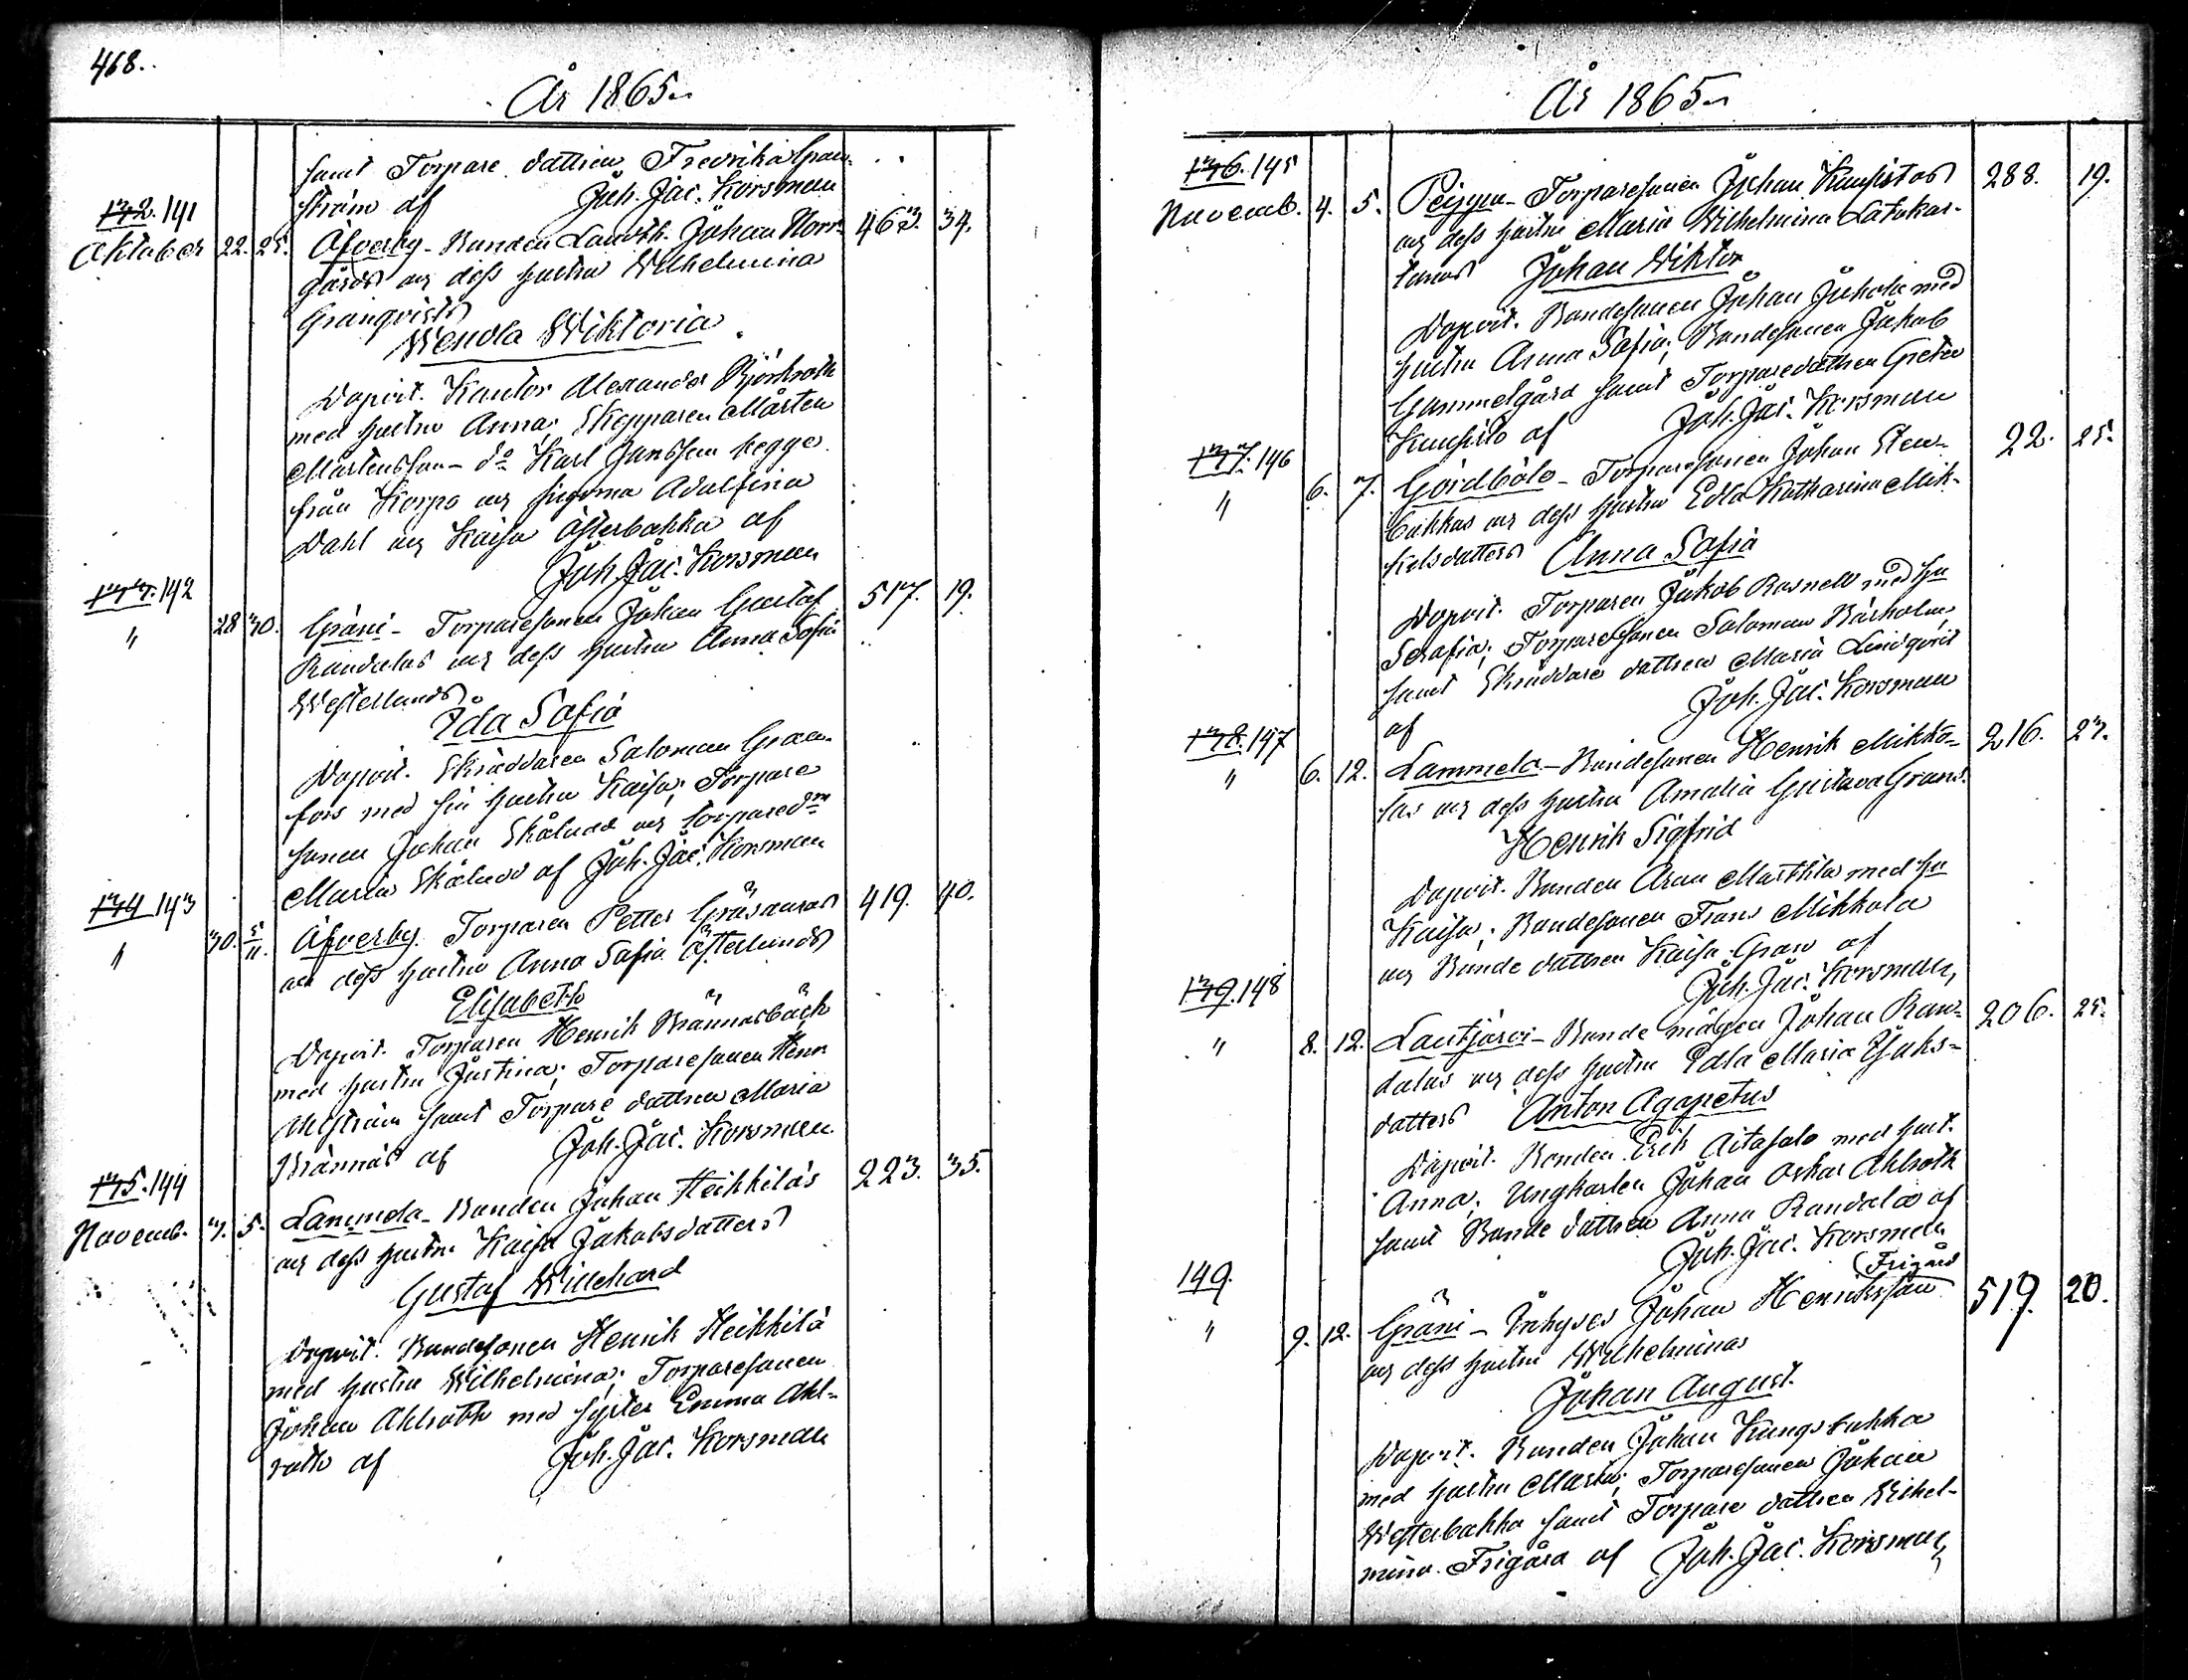 468.
År 1865.
samt Torpare dattren Fredrika Gran-
ström af Joh. Jac. Korsman
132. 141
Oktober 22. 25. Åfverby - Bonden Landtb. Johan Norr- 463. 34.
gårds och dess hustru Wilhelmina
Granqvists
Wendla Wiktoria
Dopvit. Kantor Alexander Björkroth
med hustru Anna; Skepparen Mårten
Mårtensson - do Karl Jansson begge
från Korpo och pigorna Adolfina
Dahl och Kaisa Österbakka af
Joh. Jac. Korsman
133. 142
" 28 30. Gräni - Torparesonen Johan Gustaf 517. 19.
Randalas och dess hustru Anna Sofia
Westerlunds
Ida Sofia
Dopvit. Skräddaren Saloman Gran-
fors med sin hustru Kaisa; Torpare
sonen Johan Skålund och torpared:n
Maria Skålund af Joh. Jac. Korsman
134 143
" 30. 5/11. Åfverby. Torparen Petter Gräsanas 419. 40.
och dess hustru Anna Sofia Österlunds
Elisabeth
Dopvit. Torparen Henrik Brännasbäck
med hustru Justina; Torparesonen Henr.
Ahlström samt Torpare dattren Maria
Brännäs af Joh. Jac. Korsman
135. 144
Novemb. 3. 5. Lammela - Bonden Johan Heikkiläs 223. 35.
och dess hustru Kaisa Jakobsdatters
Gustaf Willehard
Dopvit. Bondesonen Henrik Heikkilä
med hustru Wilhelmina; Torparesonen
Johan Ahlroth med syster Emma Ahl-
roth af Joh. Jac. Korsman
År 1865
136. 145
Novemb. 4. 5. Peippu - Torparesonen Johan Kuusistos 288. 19.
och dess hustru Maria Wilhelmina Latokar-
tanos Johan Wiktor
Dopvit. Bondesonen Johan Jukola med
hustru Anna Sofia; Bondesonen Jakob
Gammelgård samt Torparedattren Greta
Kuusisto af Joh. Jac. Korsman
137. 146
" 6. 7. Goidbölo - Torparesonen Johan Sten- 22. 25.
bakkas och dess hustru Edla Katharina Mik-
kelsdatters Anna Sofia
Dopvit. Torparen Jakob Rosnell med hu
Serafia; Torparesonen Saloman Bärholm
samt Skräddare dattren Maria Lindqvist
af Joh. Jac. Korsman
138. 147
" 6. 12. Lammela - Bondesonen Henrik Mikko- 216. 23.
las och dess hustru Amalia Gustava Grans.
Henrik Sigfrid
Dopvit. Bonden Aron Marttila med hu
Kaisa; Bondesonen Frans Mikkola
och Bonde dattren Kaisa Gran af
Joh. Jac. Korsman
139. 148
" 8. 12. Lautjärvi - Bonde mågen Johan Ran- 206. 25.
dalas och dess hustru Edla Maria Isaks-
datters Anton Agapetus
Dopvit. Bonden Erik Aitasalo med hust.
Anna; Ungkarlen Johan Oskar Ahlroth
samt Bonde dattren Anna Randala af
Joh. Jac. Korsman
149. (Frigård
" 9. 12. Gräni - Inhyses Johan Henriksson 519. 20.
och dess hustru Wilhelminas
Johan August.
Dopvit. Bonden Johan Kungsbakka
med hustru Maria; Torparesonen Johan
Westerbakka samt Torpare dattren Wilhel-
mina Frigård af Joh. Jac. Korsman